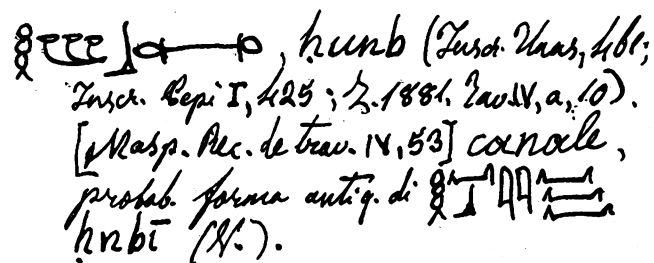 , ḥunb (Inscr. Unas, 461;
Inscr. Pepi I, 425; Z. 1881. Tav.IV, a, 10).
[Masp. Rec. de trav. IV, 53] canale,
probab. forma antiq. di
ḥnbī (V.).